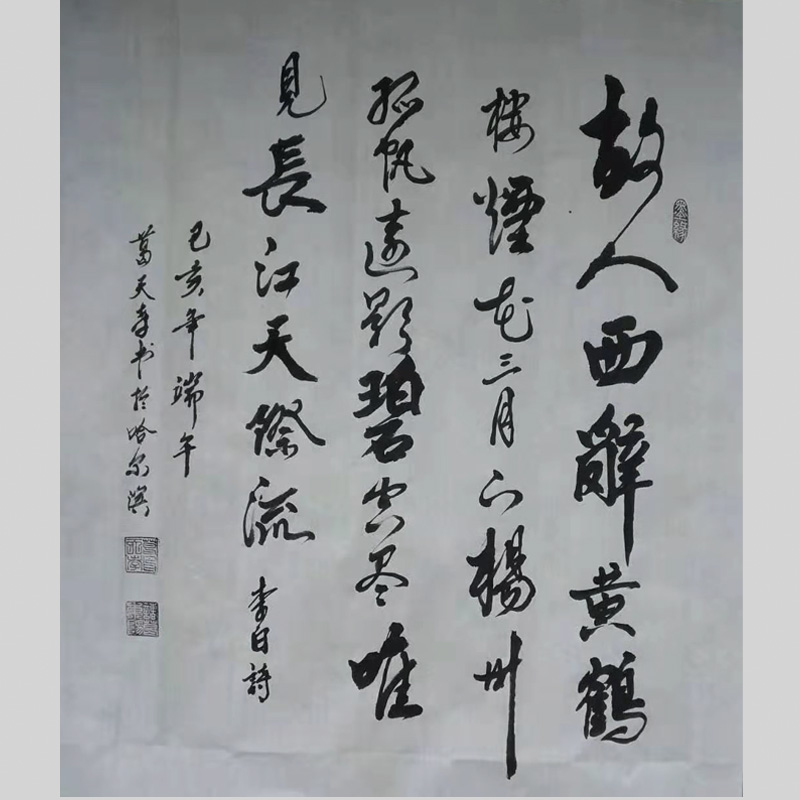 故人西辭黄鶴
楼煙花三月下楊州
孤帆遠影碧空尽唯
見長江天際流 李白詩
己亥年端午
葛天书於哈尔滨